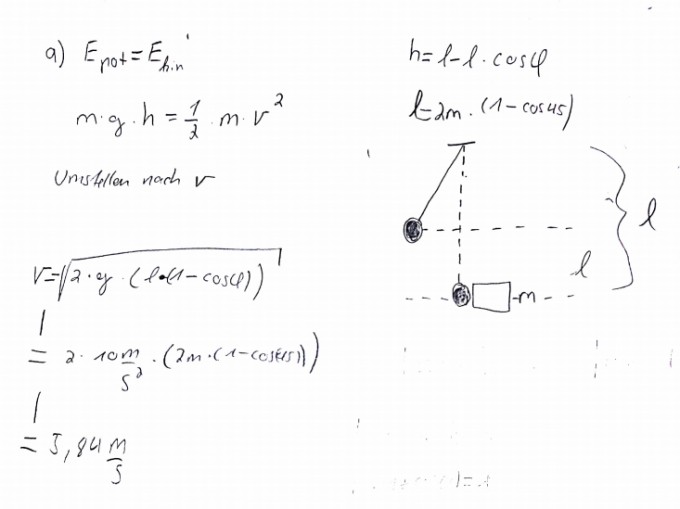 a) E_pot = E_kin
m · g · h = 1/2 · m · v²
Umstellen nach v
v = √(2 · g · (l · (1 - cosφ)))
= 2 · 10 m/s² · (2m · (1 - cos(45)))
= 3,84 m/s
h = l - l · cosφ
l = 2m · (1 - cos45)
l
l
m